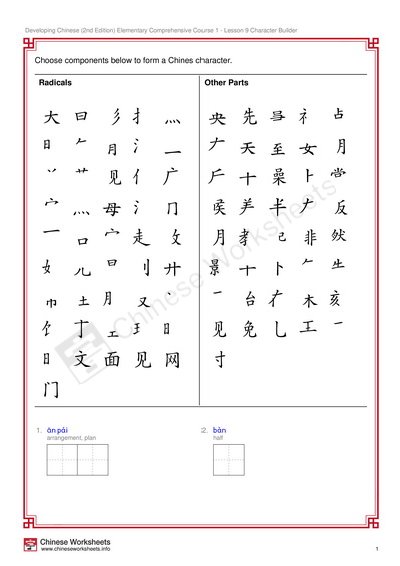 Developing Chinese (2nd Edition) Elementary Comprehensive Course 1 - Lesson 9 Character Builder
Choose components below to form a Chines character.
Radicals
大 曰 彡 扌 灬
日 𠂉 月 氵 一
丷 艹 见 亻 广
宀 灬 母 氵 冂
一 口 宀 走 攵
女 儿 曰 刂 廾
巾 土 月 又 丶
饣 丁 工 王 日
日 文 面 见 网
门
Other Parts
央 先 彐 礻 占
亠 天 至 女 月
𠂆 十 喿 卜 龸
侯 𦍌 半 𠂇 反
月 孝 己 非 然
景 十 卜 𠂉 生
一 台 木 亥
见 免 乚 工 一
寸
Chinese Worksheets
1. ān pái
arrangement, plan
2. bàn
half
Chinese Worksheets
www.chineseworksheets.info
1